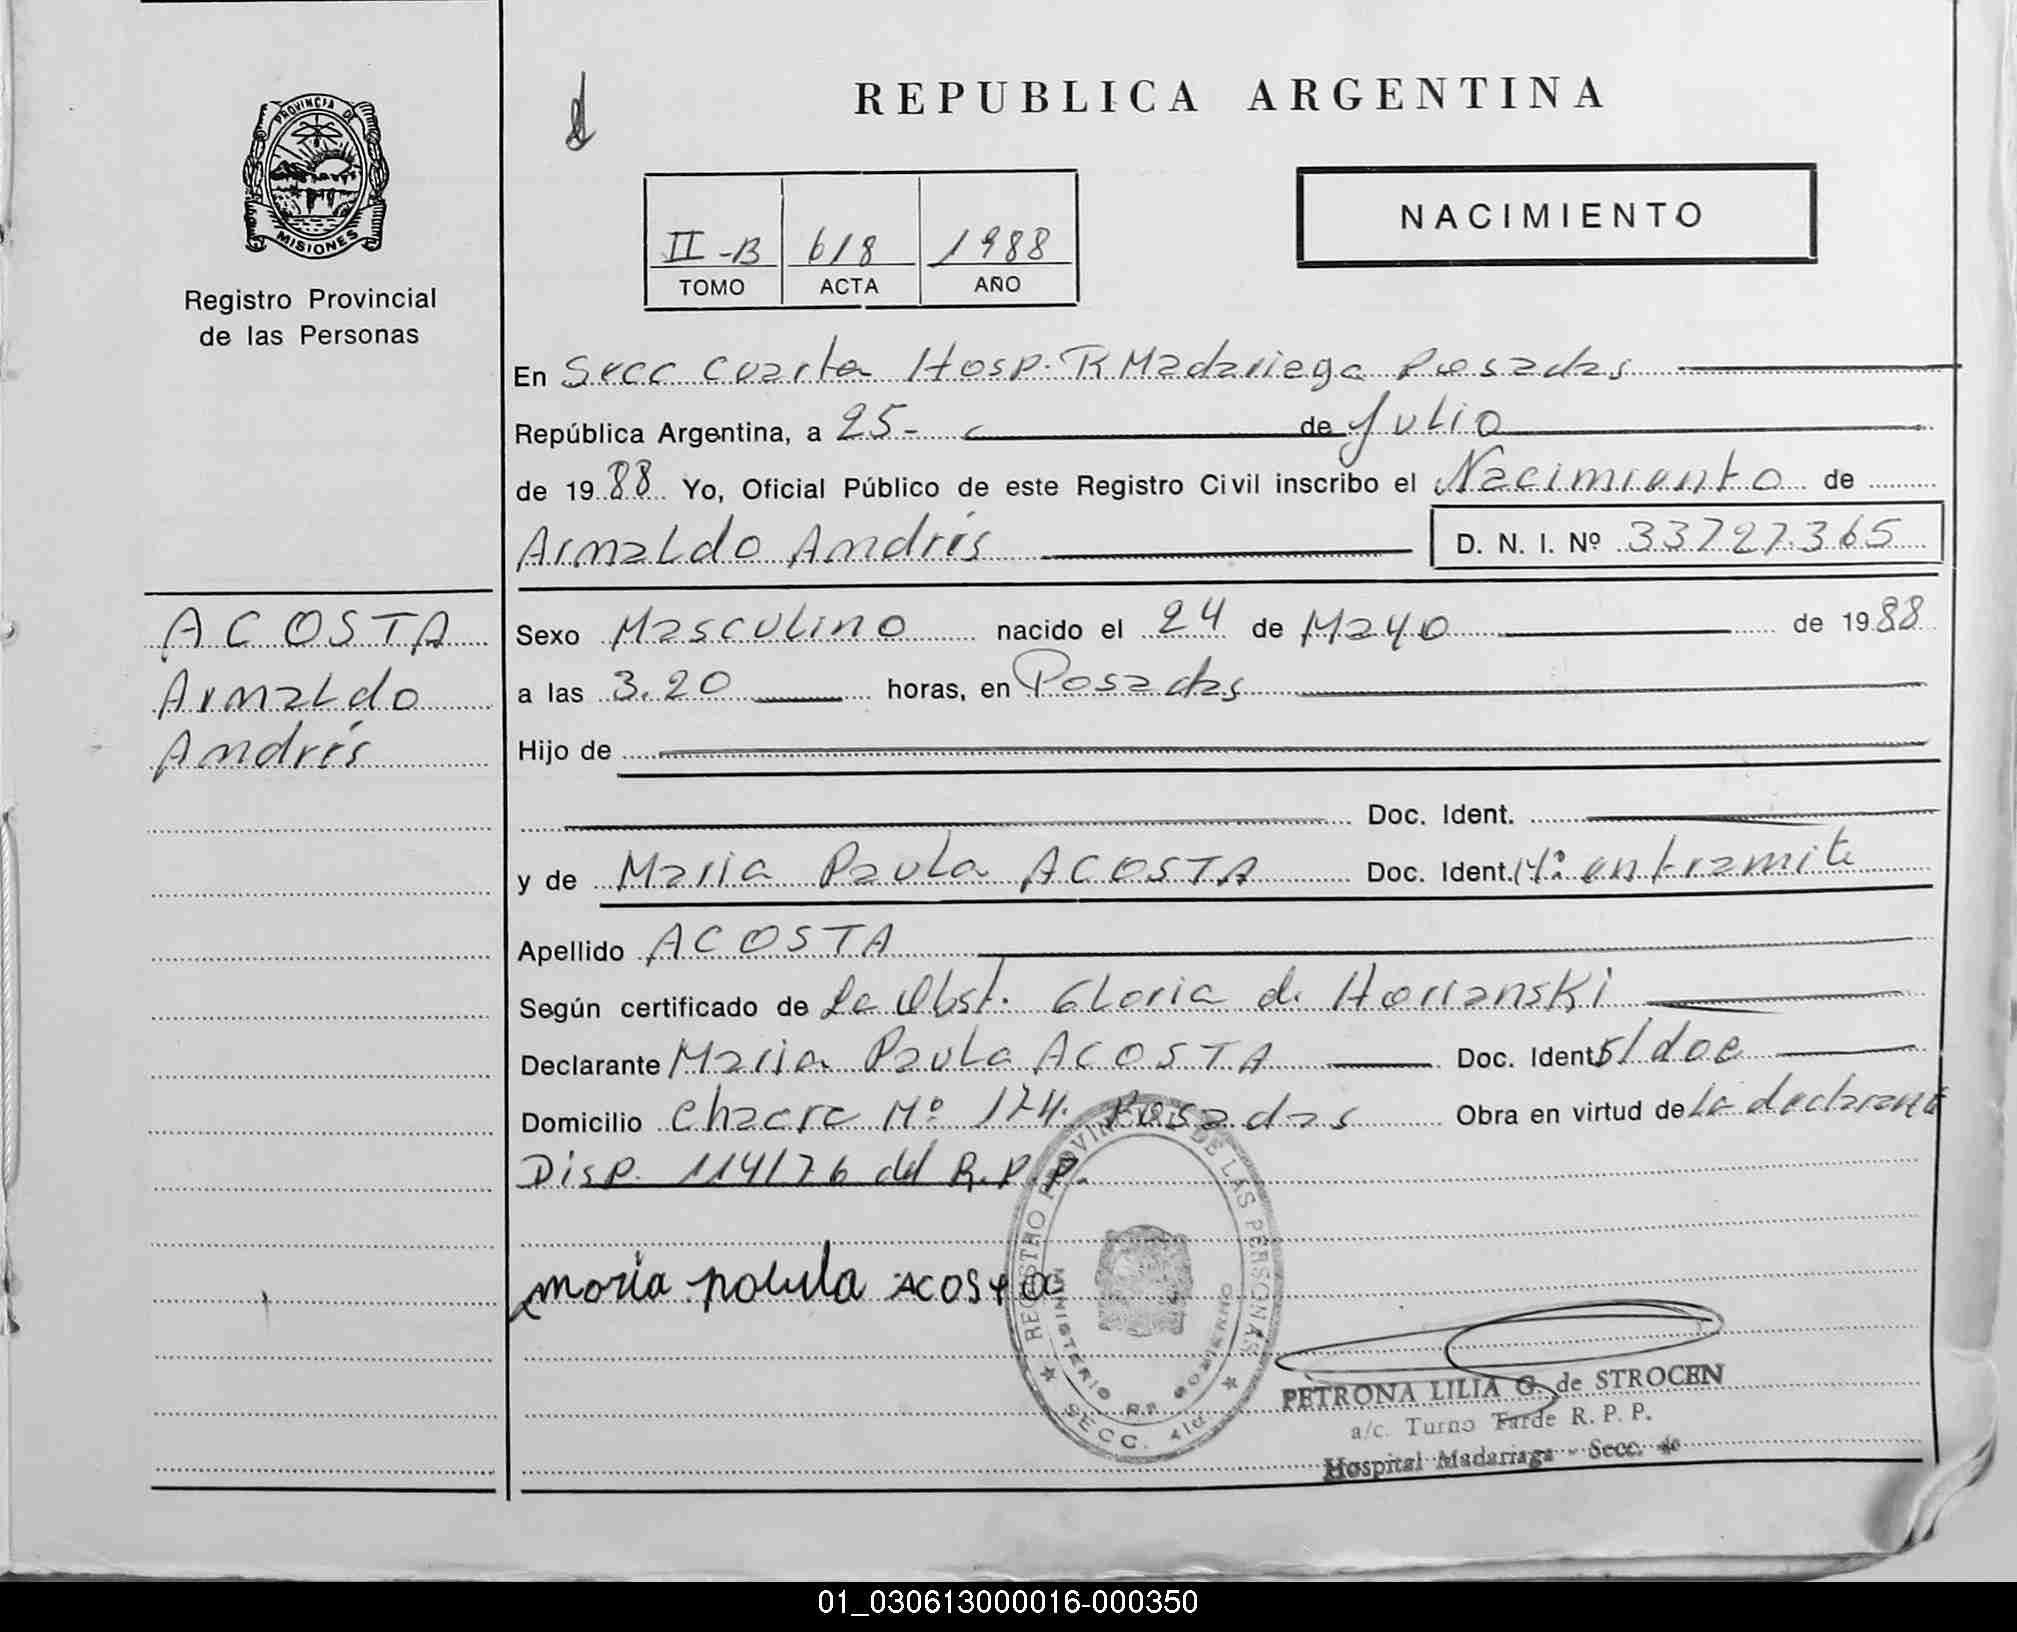 PROVINCIA DE
MISIONES
Registro Provincial
de las Personas
REPUBLICA ARGENTINA
NACIMIENTO
II-B 618 1988
TOMO ACTA AÑO
En Secc Cuarta Hosp. R Madariega Posadas
República Argentina, a 25- de Julio
de 1988 Yo, Oficial Público de este Registro Civil inscribo el Nacimiento de
Arnaldo Andrés D. N. I. Nº 33727365
ACOSTA
Arnaldo
Andrés
Sexo Masculino nacido el 24 de Mayo de 1988
a las 3.20 horas, en Posadas
Hijo de
Doc. Ident.
y de Maria Paula ACOSTA Doc. Ident. Nº en tramite
Apellido ACOSTA
Según certificado de La Obst. Gloria de Horianski
Declarante Maria Paula ACOSTA Doc. Ident s/doc
Domicilio Chacra Nº 174. Posadas Obra en virtud de La declarante
Disp. 114/76 del R.P.P.
maria paula ACOSTA
REGISTRO PROVINCIAL DE LAS PERSONAS
MINISTERIO GOBIERNO
R.P.
SECC. 4ta
PETRONA LILIA G. de STROCEN
a/c. Turno Tarde R. P. P.
Hospital Madariaga - Secc. 4a
01_030613000016-000350